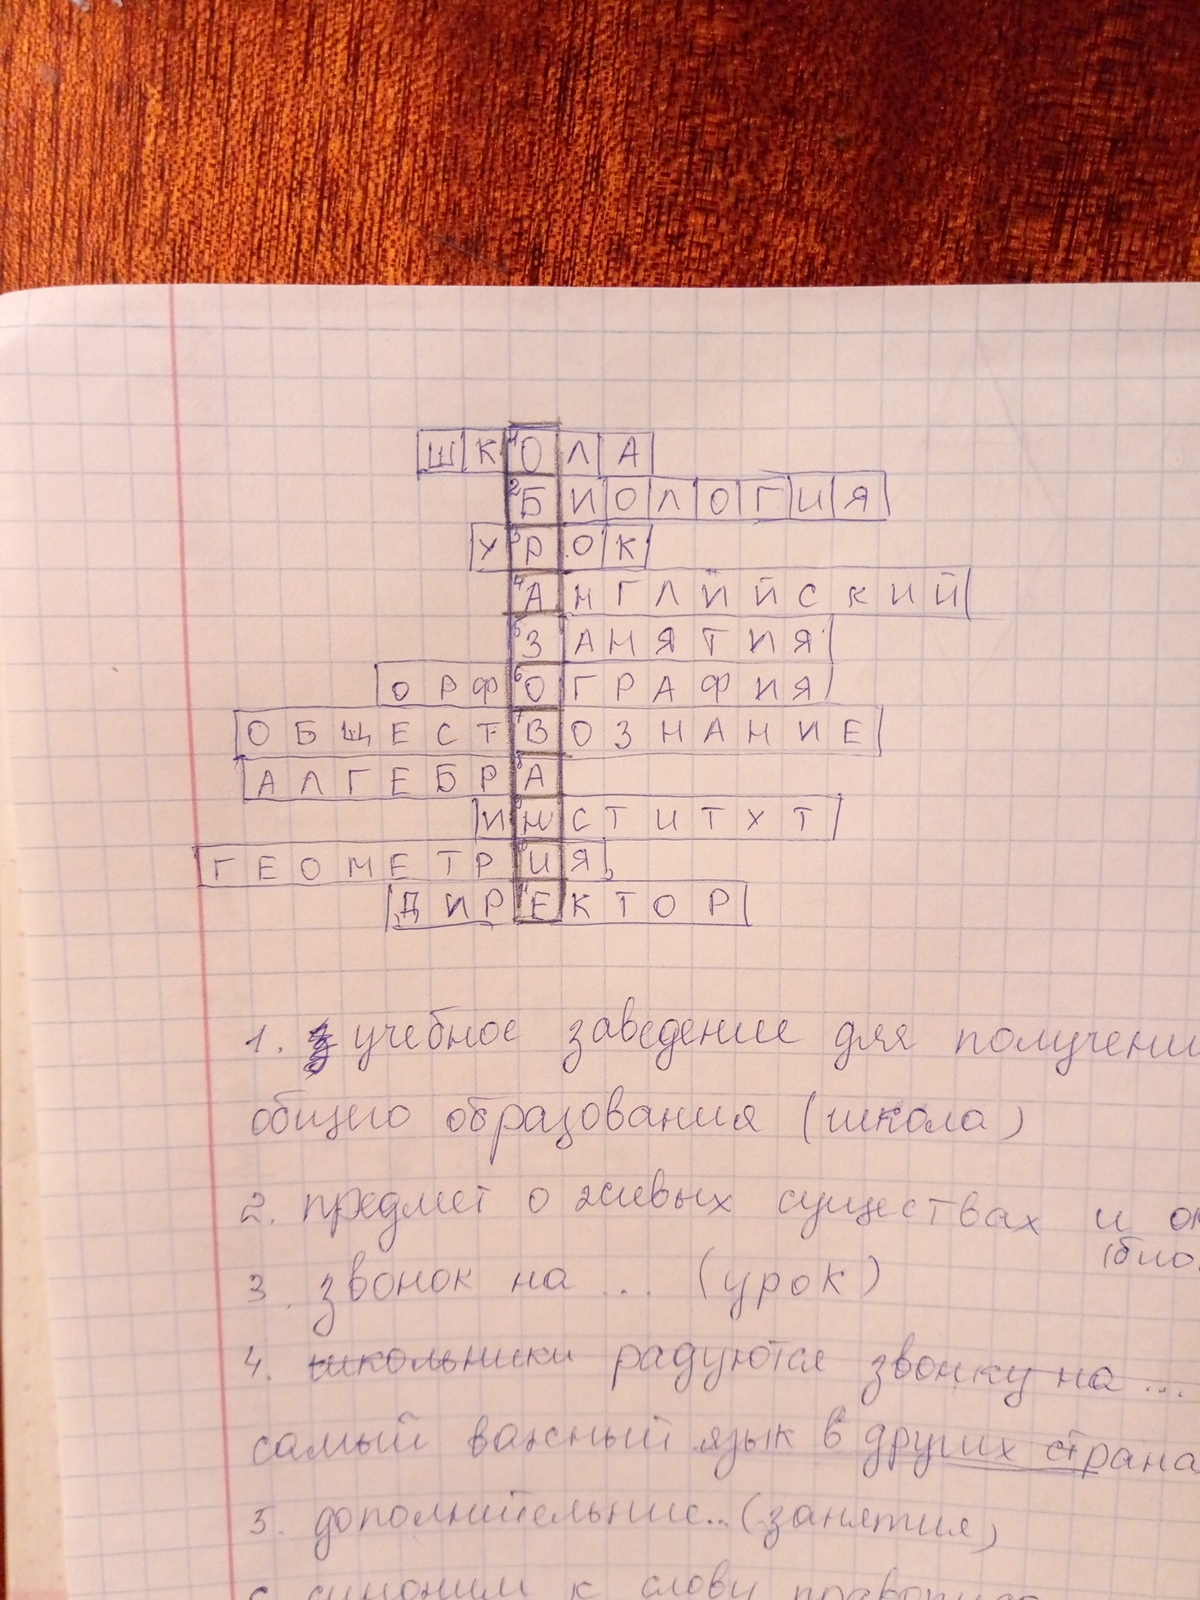 ШКОЛА
БИОЛОГИЯ
УРОК
АНГЛИЙСКИЙ
ЗАНЯТИЯ
ОРФОГРАФИЯ
ОБЩЕСТВОЗНАНИЕ
АЛГЕБРА
ИНСТИТУТ
ГЕОМЕТРИЯ
ДИРЕКТОР
1. учебное заведение для получени
общего образования (школа)
2. предмет о живых существах и
(био.
3. звонок на ... (урок)
4. школьники радуются звонку на ...
самый важный язык в других страна
5. дополнительние.. (занятия)
синоним к слову правопис